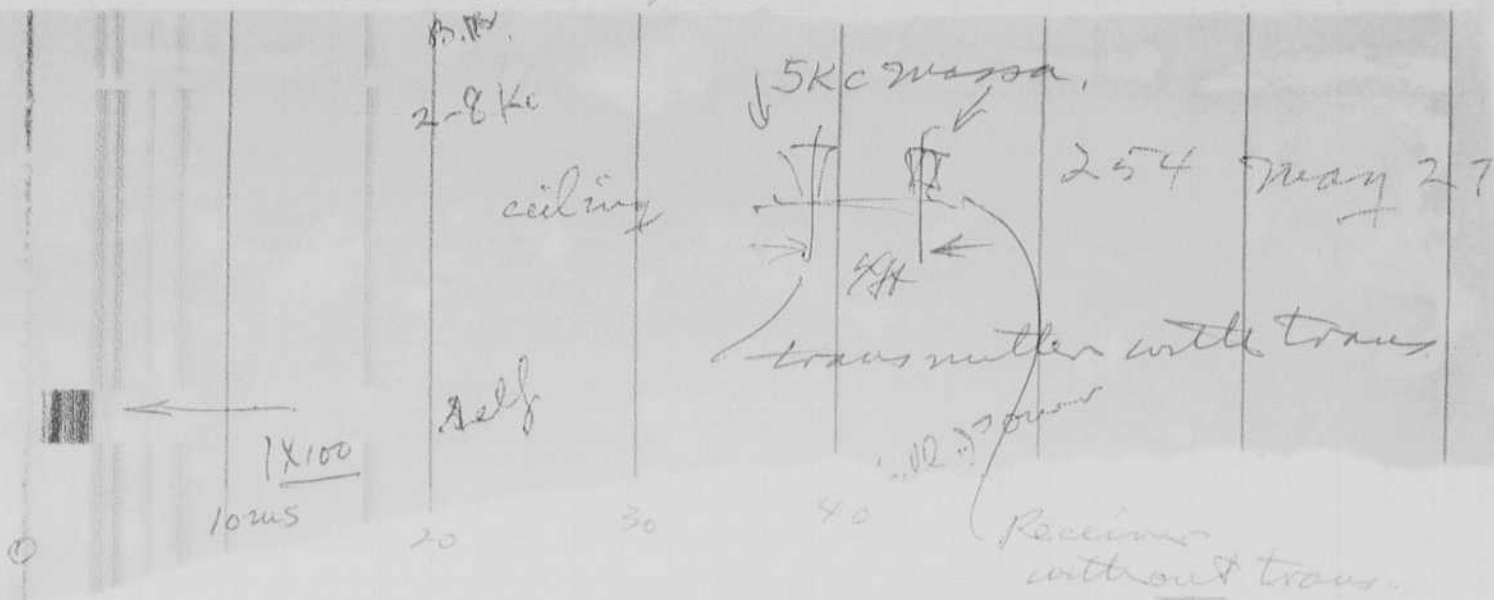 2-8 Kc
5Kc massa.
ceiling
254 May 27
4ft
transmitter with trans
Self
1X100
10ms
20
30
40
0
Receiver
without trans.